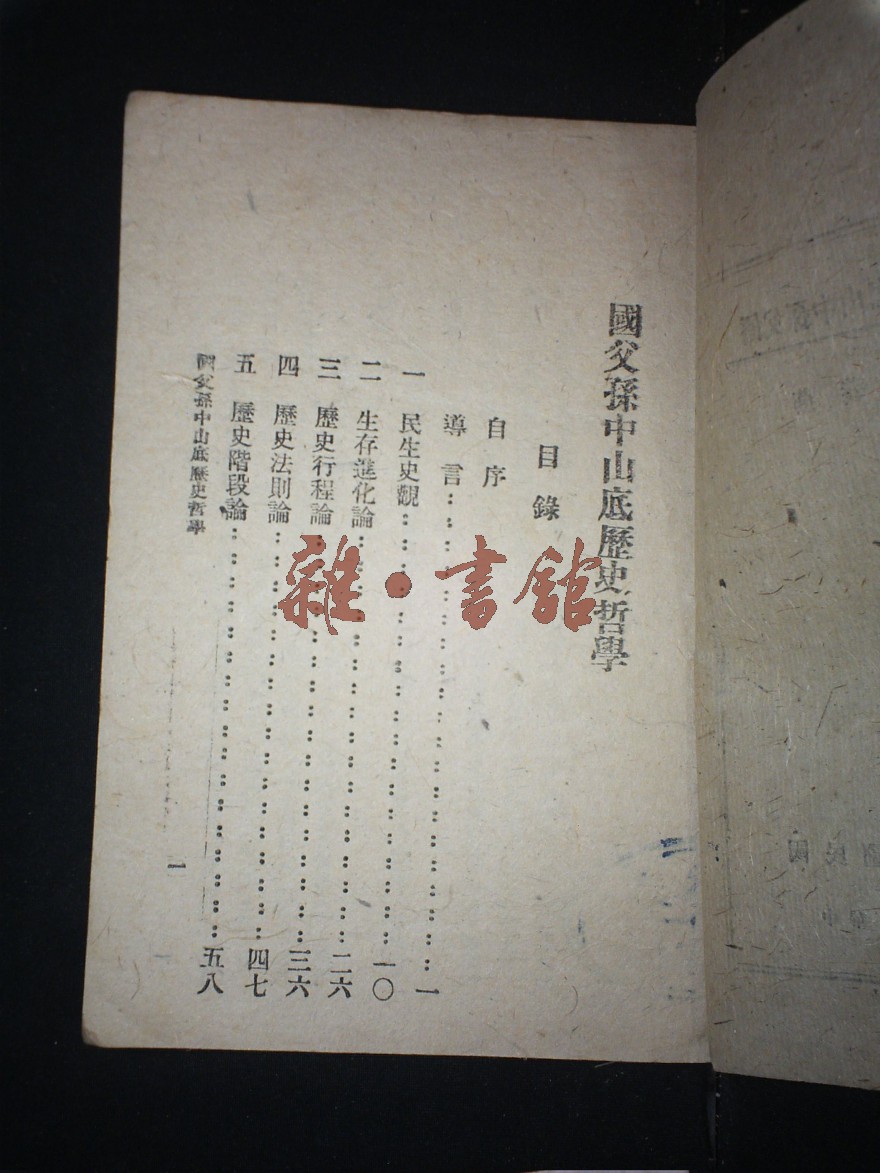 國父孫中山底歷史哲學
目錄
自序
導言……一
一 民生史觀……一〇
二 生存進化論……二六
三 歷史行程論……三六
四 歷史法則論……四七
五 歷史階段論……五八
國父孫中山底歷史哲學
一
雜·書館